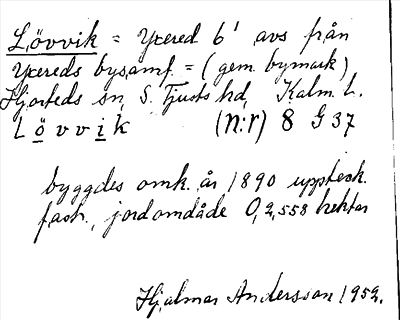 Lövvik = Yxered 6¹ avs från
Yxereds bysamf. = (gem. bymark)
Hjorteds sn, S. Tjusts hd, Kalm. L.
Lövvik (n:r) 8 G 37
byggdes omk. år 1890 upptesk.
fastr., jordområde 0,2,558 hektar
Hjalmar Andersson 1959.